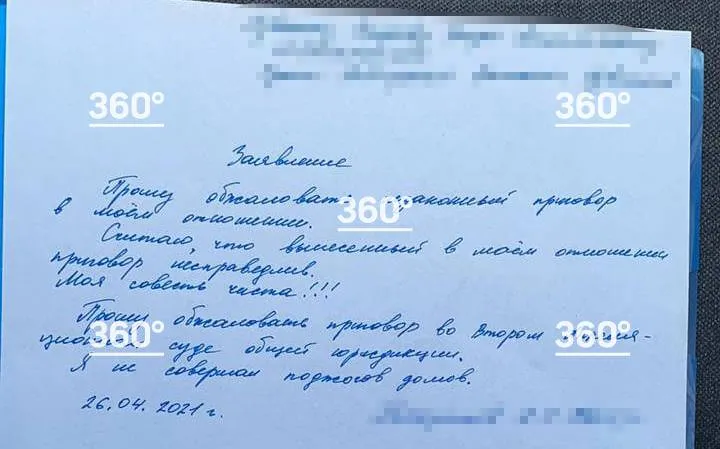 360°
360°
Заявление
Прошу обжаловать законный приговор
в моём отношении.
360°
Считаю, что вынесенный в моём отношении
приговор несправедлив.
Моя совесть чиста!!!
Прошу обжаловать приговор во Втором
360°
360°
суде общей юрисдикции.
Я не совершал поджогов домов.
26.04.2021 г.